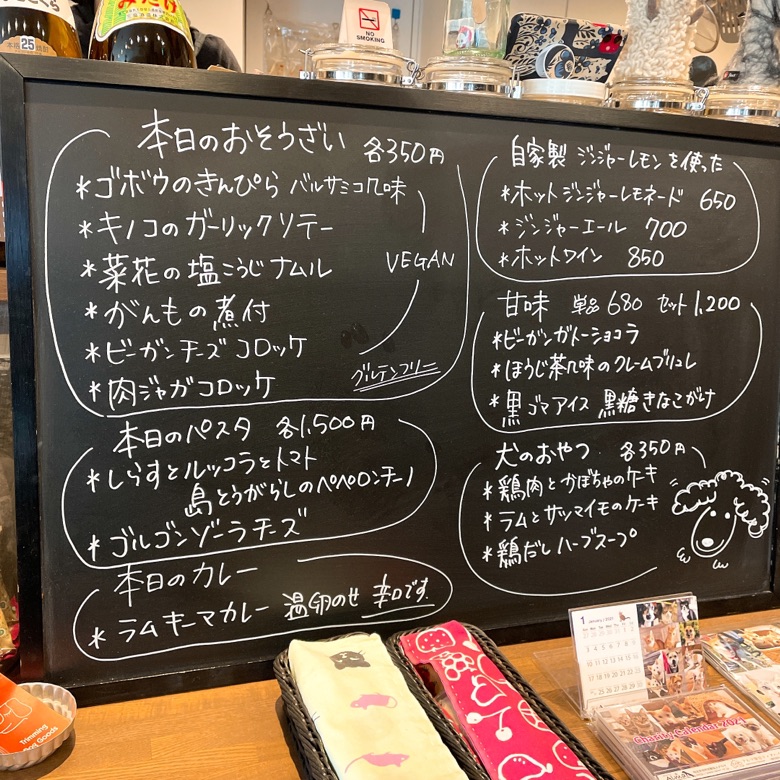 本格焼酎
25
みたけ
NO
SMOKING
本日のおそうざい 各350円
*ゴボウのきんぴら バルサミコ風味
*キノコのガーリックソテー
*菜花の塩こうじナムル
*がんもの煮付
*ビーガンチーズコロッケ
*肉ジャガコロッケ
VEGAN
グルテンフリー
本日のパスタ 各1,500円
*しらすとルッコラとトマト
島とうがらしのペペロンチーノ
*ゴルゴンゾーラチーズ
本日のカレー
*ラムキーマカレー 温卵のせ 辛口です.
自家製 ジンジャーレモンを使った
*ホットジンジャーレモネード 650
*ジンジャーエール 700
*ホットワイン 850
甘味 単品680 セット1,200
*ビーガンガトーショコラ
*ほうじ茶風味のクレームブリュレ
*黒ゴマアイス 黒糖きなこがけ
犬のおやつ 各350円
*鶏肉とかぼちゃのケーキ
*ラムとサツマイモのケーキ
*鶏だしハーブスープ
1 January 2021
Calendar 2021
Trimming
Goods